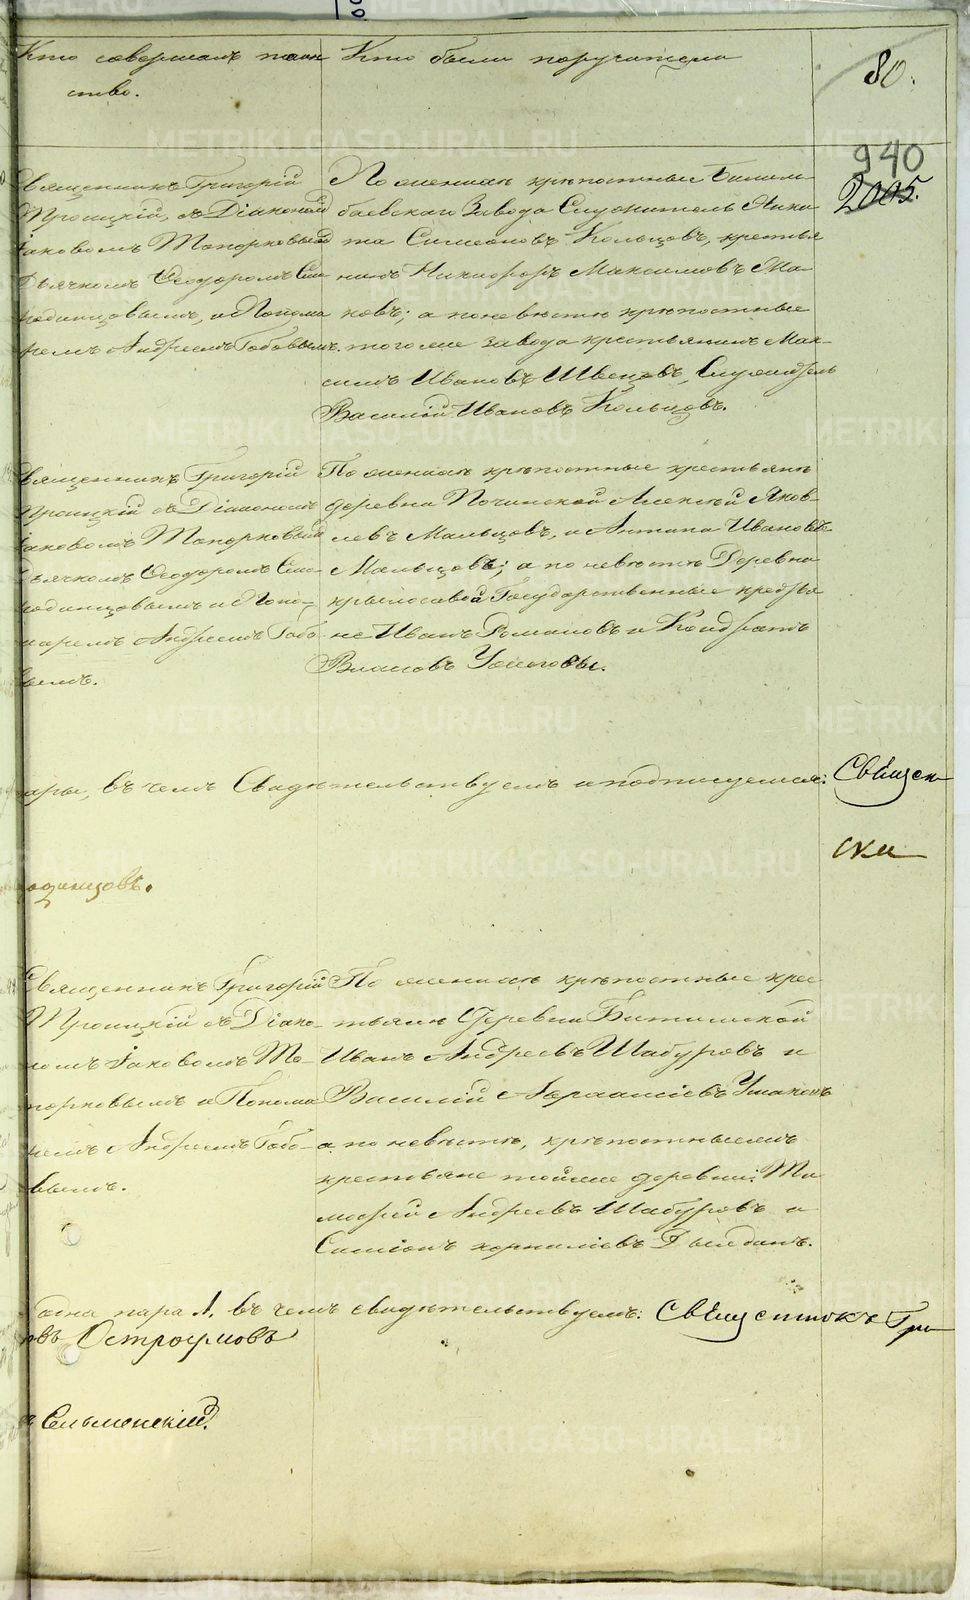 Кто совершалъ таин
ство.
Кто были поручители
80.
940
2005.
Священникъ Григорій
Троицкій, съ Діакономъ
Іаковомъ Топорковымъ
Дьячкомъ Ѳеодоромъ Сло
бодинцовымъ, и Понома
ремъ Андреемъ Бобовымъ.
По женихѣ крѣпостные Билим-
баевскаго Завода Служитель Ники
та Симеоновъ Кольцовъ, крестья
нинъ Никифоръ Максимовъ Ма-
ковъ; а по невѣстѣ крѣпостные
того же завода крестьянинъ Мак-
симъ Ивановъ Швецовъ, Служитель
Василій Ивановъ Кольцовъ.
Священникъ Григорій
Троицкій съ Діакономъ
Іаковомъ Топорковымъ
Дьячкомъ Ѳеодоромъ Сло-
бодинцовымъ и Поно-
маремъ Андреемъ Бобо
вымъ.
По женихѣ крѣпостные крестьяне
деревни Починской Алексѣй Яков-
левъ Мальцовъ, и Антипа Ивановъ
Мальцовъ; а по невѣстѣ Деревни
Крылосовой Государственные крестья
не Иванъ Романовъ и Кондратъ
Власовъ
ары, въ чемъ Свидѣтельствуемъ и подписуемся: Священ
ски
одинцовъ.
Священникъ Григорій
Троицкій съ Діако-
номъ Іаковомъ То-
порковымъ и Понома
ремъ Андреемъ Бобо-
вымъ.
По женихѣ крѣпостные крес
тьяне Деревни Битимской
Иванъ Андреевъ Шабуровъ и
Василій Ушаковъ
а по невѣстѣ, крѣпостныемъ
крестьяне тойже деревни: Ти
мофей Андреевъ Шабуровъ и
Симеонъ Корниліевъ
одна пара 1. въ чемъ свидѣтельствуемъ: Священникъ Гри
овъ Остроумовъ
Сельменскій.
METRIKI.GASO-URAL.RU